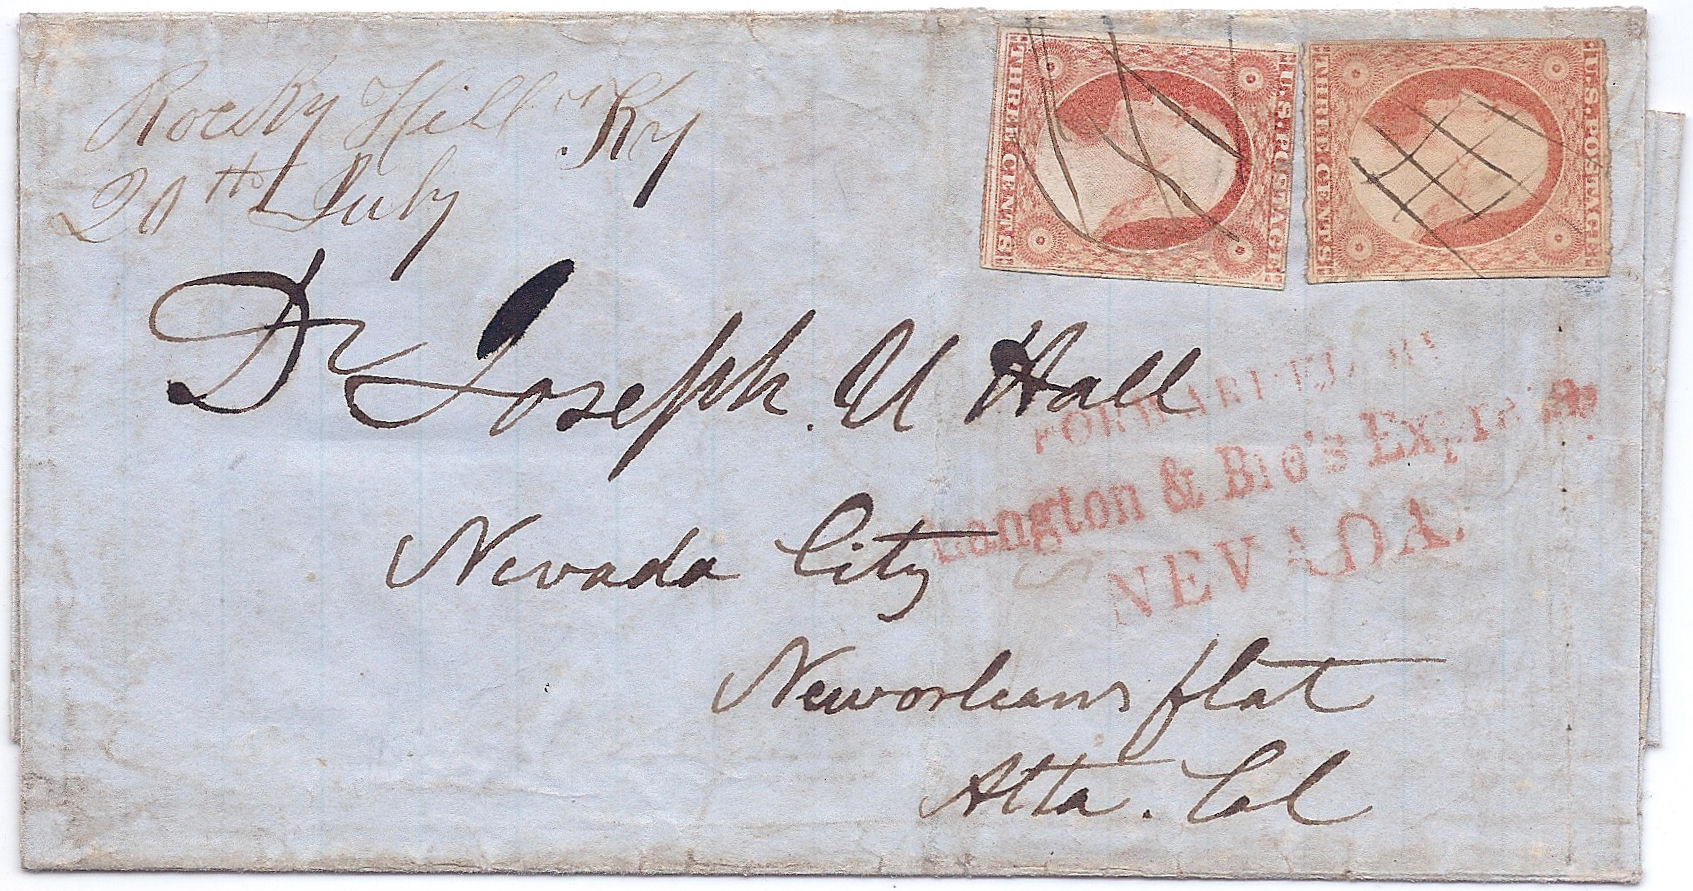 Rocky Hill Ky
20th July
THREE CENTS
U.S. POSTAGE
THREE CENTS
U.S. POSTAGE
Dr Joseph. U Hall
Nevada City
Neworleans flat
Alta. Cal
FORWARDED BY
Langton & Bro's Express.
NEVADA.